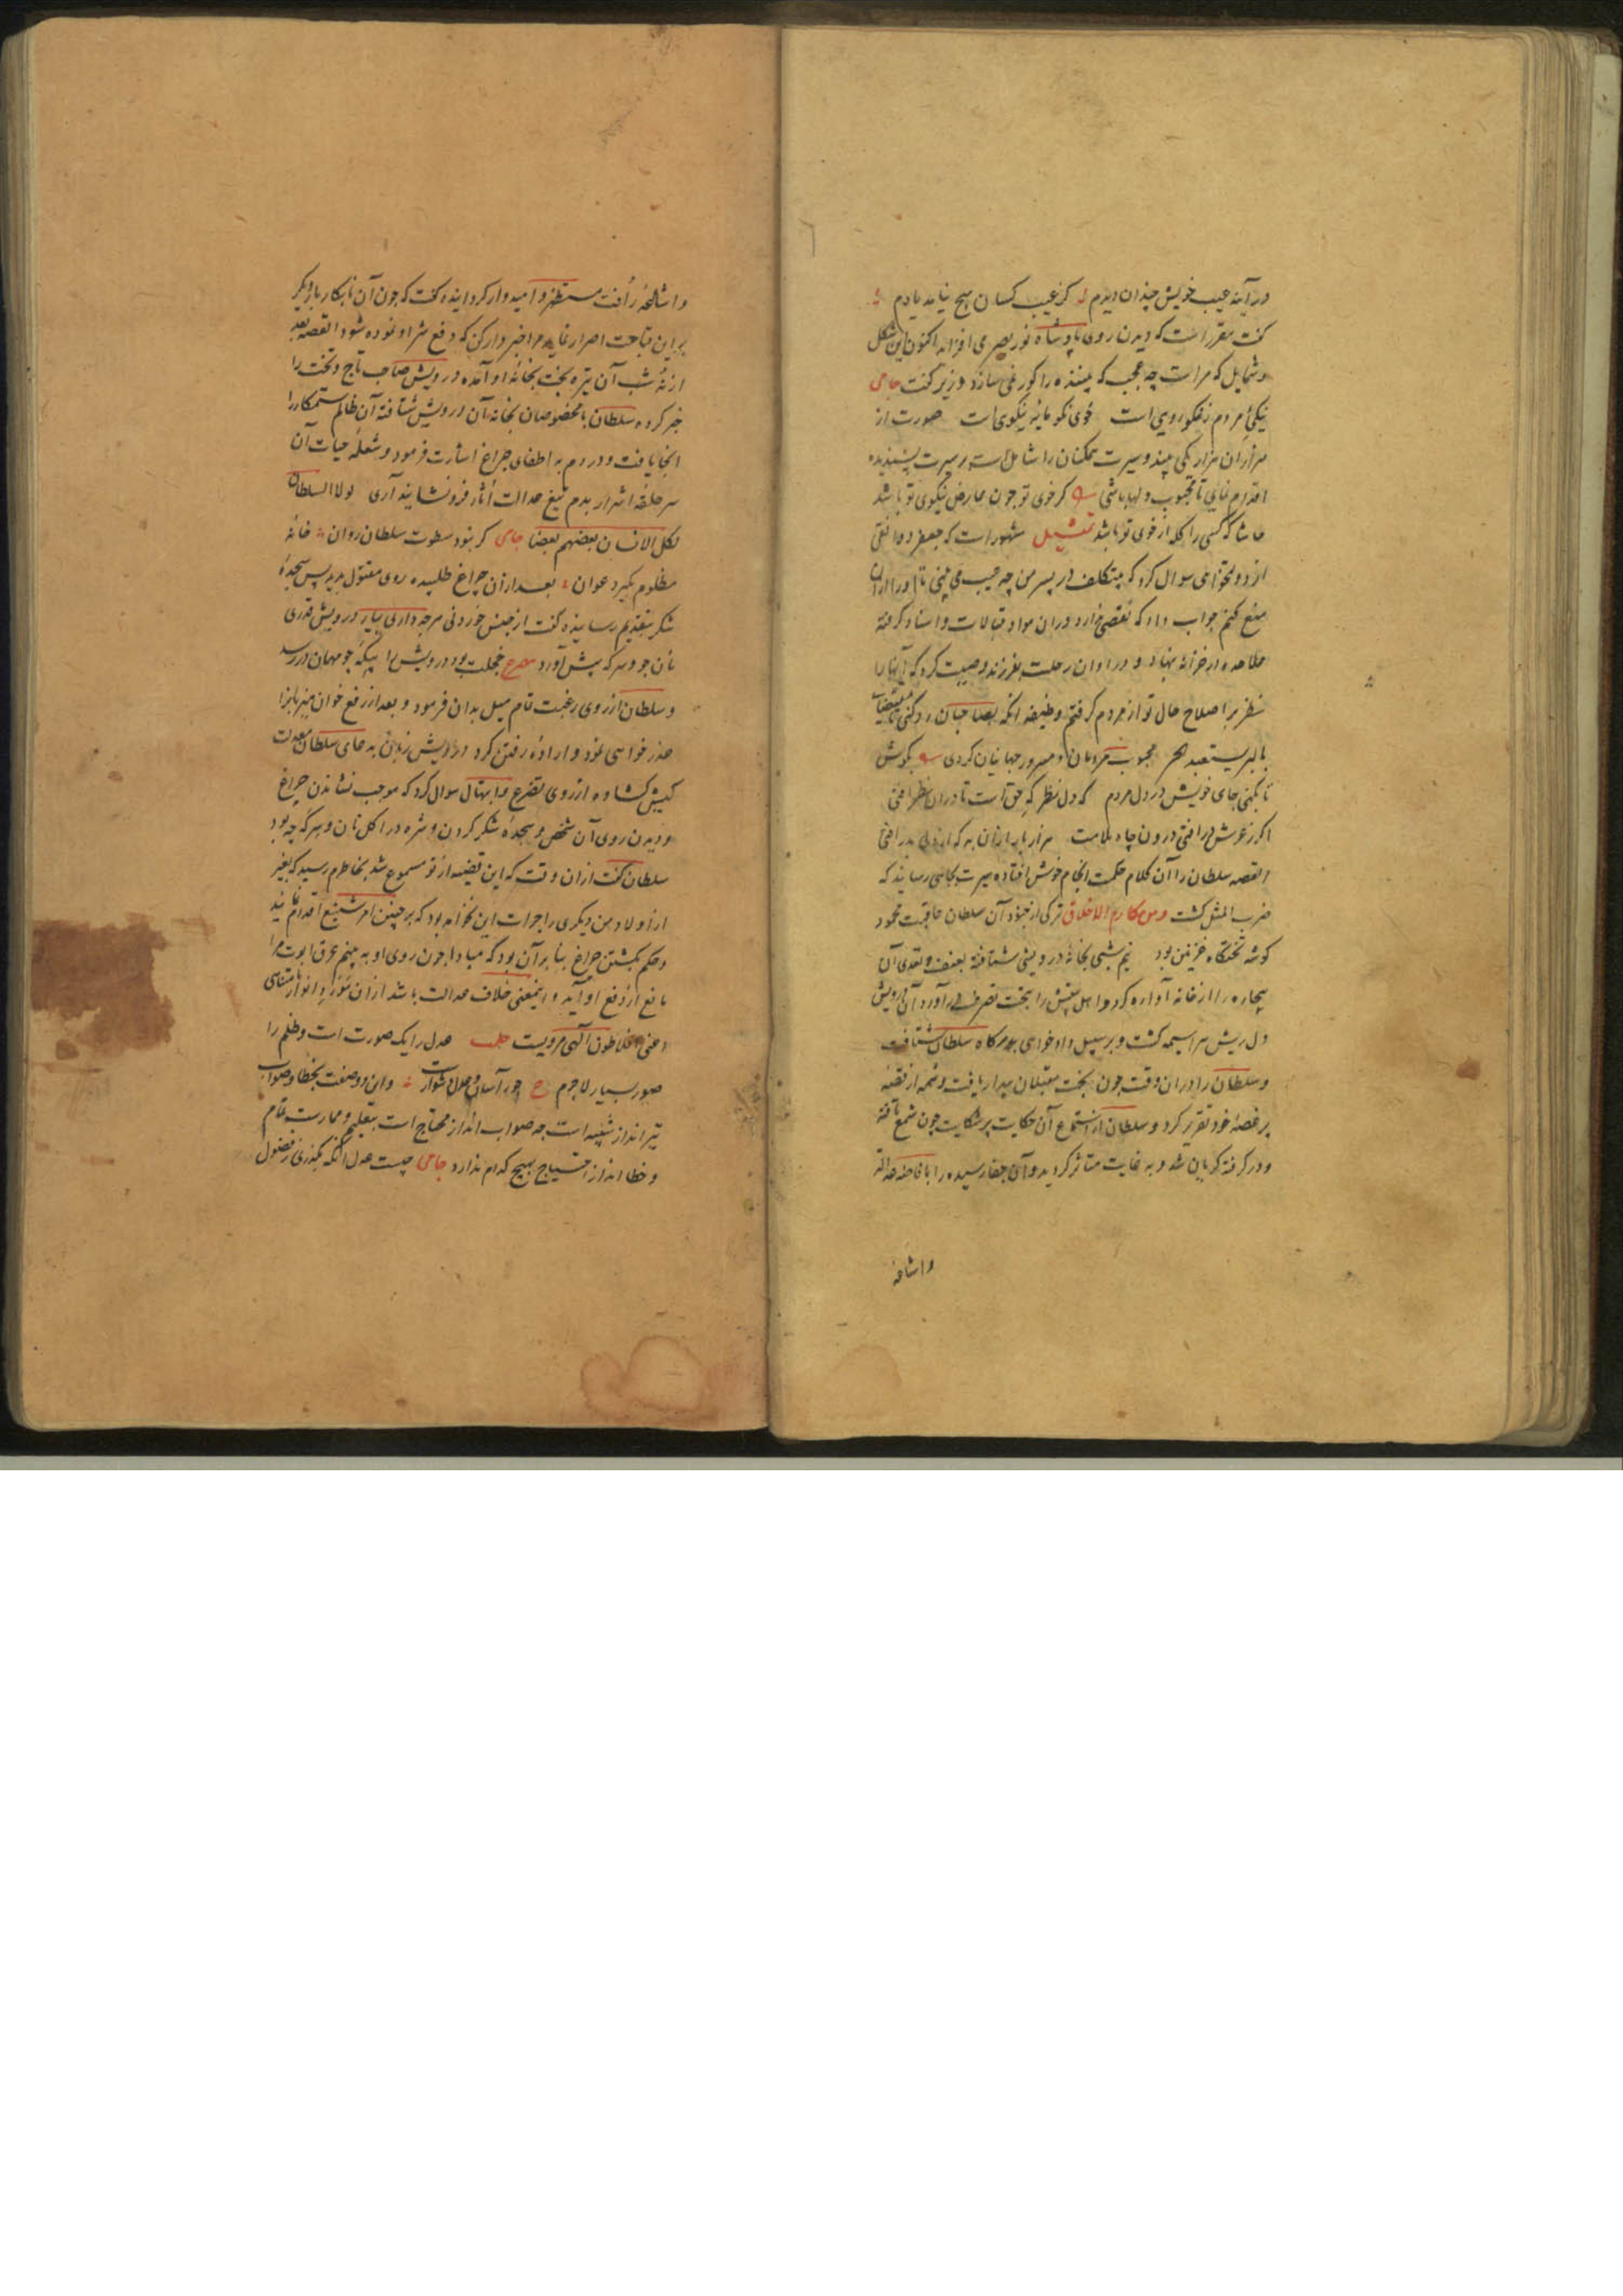 در آینه عیب خویش چندان دیدم کز عیب کسان هیچ نیامد یادم
گفت مقرر است که دیدن روی پادشاه نور بصر می افزاید اکنون این شکل
و شمایل که مراست چه عجب که بیننده را کور نمی سازد وزیر گفت جامی
نیکی مردم نه نکورویی است خوی نکو مایه نیکوی است صورت از
هزاران هزار یکی بیند و سیرت همکنان را شامل است بر سیرت پسندیده
اقدام نمای تا محبوب دلها باشی گر خوی تو چون عارض نیکوی تو باشد
حاشا که کسی را گله از خوی تو باشد تمثیل مشهور است که جعفر دوانقی
از سوال کرد که در پسر من چه عیب می بینی تا او را از آن
منع کنم جواب داد که نقصی ندارد در آن مواد قبالات و اسناد گرفته
علاحده در خزانه نهاد و در اوان رحلت بفرزند وصیت کرد که آنها را
نظر بر اصلاح حال تو از مردم گرفتم وظیفه آنکه بصاحبان رد کنی تا بمقتضای
بالبر یستعبد الحر محبوب مردمان و مسرور جهانیان گردی بکوش
تا بکنی جای خویش در دل مردم که دل نظرگه حق است تا در آن نظر افتی
اگر ز عرش در افتی درون چاه ملامت هزار بار از آن به که از دلی بدر افتی
القصه سلطان را آن کلام حکمت انجام خوش افتاده سیرت بجایی رسانید که
ضرب المثل گشت ومن مکارم الاخلاق ترکی از جنود آن سلطان عاقبت محمود
گوشه تختگاه غزنین بود نیم شبی بخانه درویشی شتافته بعنف و تعدی آن
بیچاره را از خانه آواره کرد و اهل بیتش را بتحت تصرف در آورد آن درویش
دل ریش سراسیمه گشت و بر سبیل دادخواهی بدرگاه سلطان شتافت
و سلطان را در آن وقت چون بخت مقبلان بیدار یافت و شمه از قضیه
پر غصه خود تقریر کرد و سلطان از استماع آن حکایت پر شکایت چون شمع تافته
و در گرفته گریان شد و به غایت متاثر گردید و آن جفا رسیده را با فاضه عدالت
و اشاعه
و اشاعه رأفت مستظهر و امیدوار گردانیده گفت که چون آن نابکار بار دیگر
بر این قباحت اصرار نماید مرا خبردار کن که دفع شر او نموده شود القصه بعد
از سه شب آن تیره بخت بخانه او آمده درویش صاحب تاج و تخت را
خبر کرده سلطان با مخصوصان بخانه آن درویش شتافته آن ظالم ستمکار را
آنجا یافت و در دم به اطفای چراغ اشارت فرمود و شعله حیات آن
سر حلقه اشرار بدم تیغ عدالت آثار فرو نشانید آری لولا السلطان
لاکل الانسان بعضهم بعضا جامی گر نبود سطوت سلطان روان خانه
مظلوم بگیرد عوان بعد از آن چراغ طلبیده روی مقتول بدید پس سجده
شکر بتقدیم رسانیده گفت از جنس خوردنی هر چه داری بیار درویش قدری
نان جو و سرکه پیش آورد مصرع خجلت بود درویش را بیگه چو مهمان در رسد
و سلطان از روی رغبت تمام میل بدان فرمود و بعد از رفع خوان میزبان را
عذر خواهی نمود و اراده رفتن کرد درویش زبان به دعای سلطان معدلت
کیش گشاده از روی تضرع و ابتهال سوال کرد که موجب نشاندن چراغ
و دیدن روی آن شخص و سجده شکر کردن و شره در اکل نان و سرکه چه بود
سلطان گفت از آن وقت که این قضیه از تو مسموع شد بخاطرم رسید که بغیر
از اولاد من دیگری را جرات این نخواهد بود که بر چنین امر شنیع اقدام نماید
و حکم بکشتن چراغ بنابر آن بود که مبادا چون روی او به بینم عرق ابوت مرا
مانع از دفع او آید و اینمعنی خلاف عدالت باشد از آن
اعنی افلاطون الهی مرویست عدل را یک صورت است و ظلم را
صور بسیار لاجرم جور آسان و عدل دشوار و این دو صفت بخطا و صواب
تیر انداز شبیه است چه صواب انداز محتاج است بتعلیم و ممارست تمام
و خطا انداز احتیاج بهیچ کدام ندارد جامی چیست عدل آنکه بگذری ز فضول